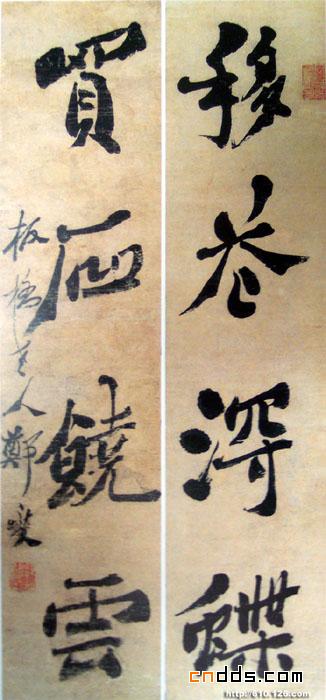 移花得蝶
買石饒雲
板橋老人鄭燮
cndds.com
http://610.126.com